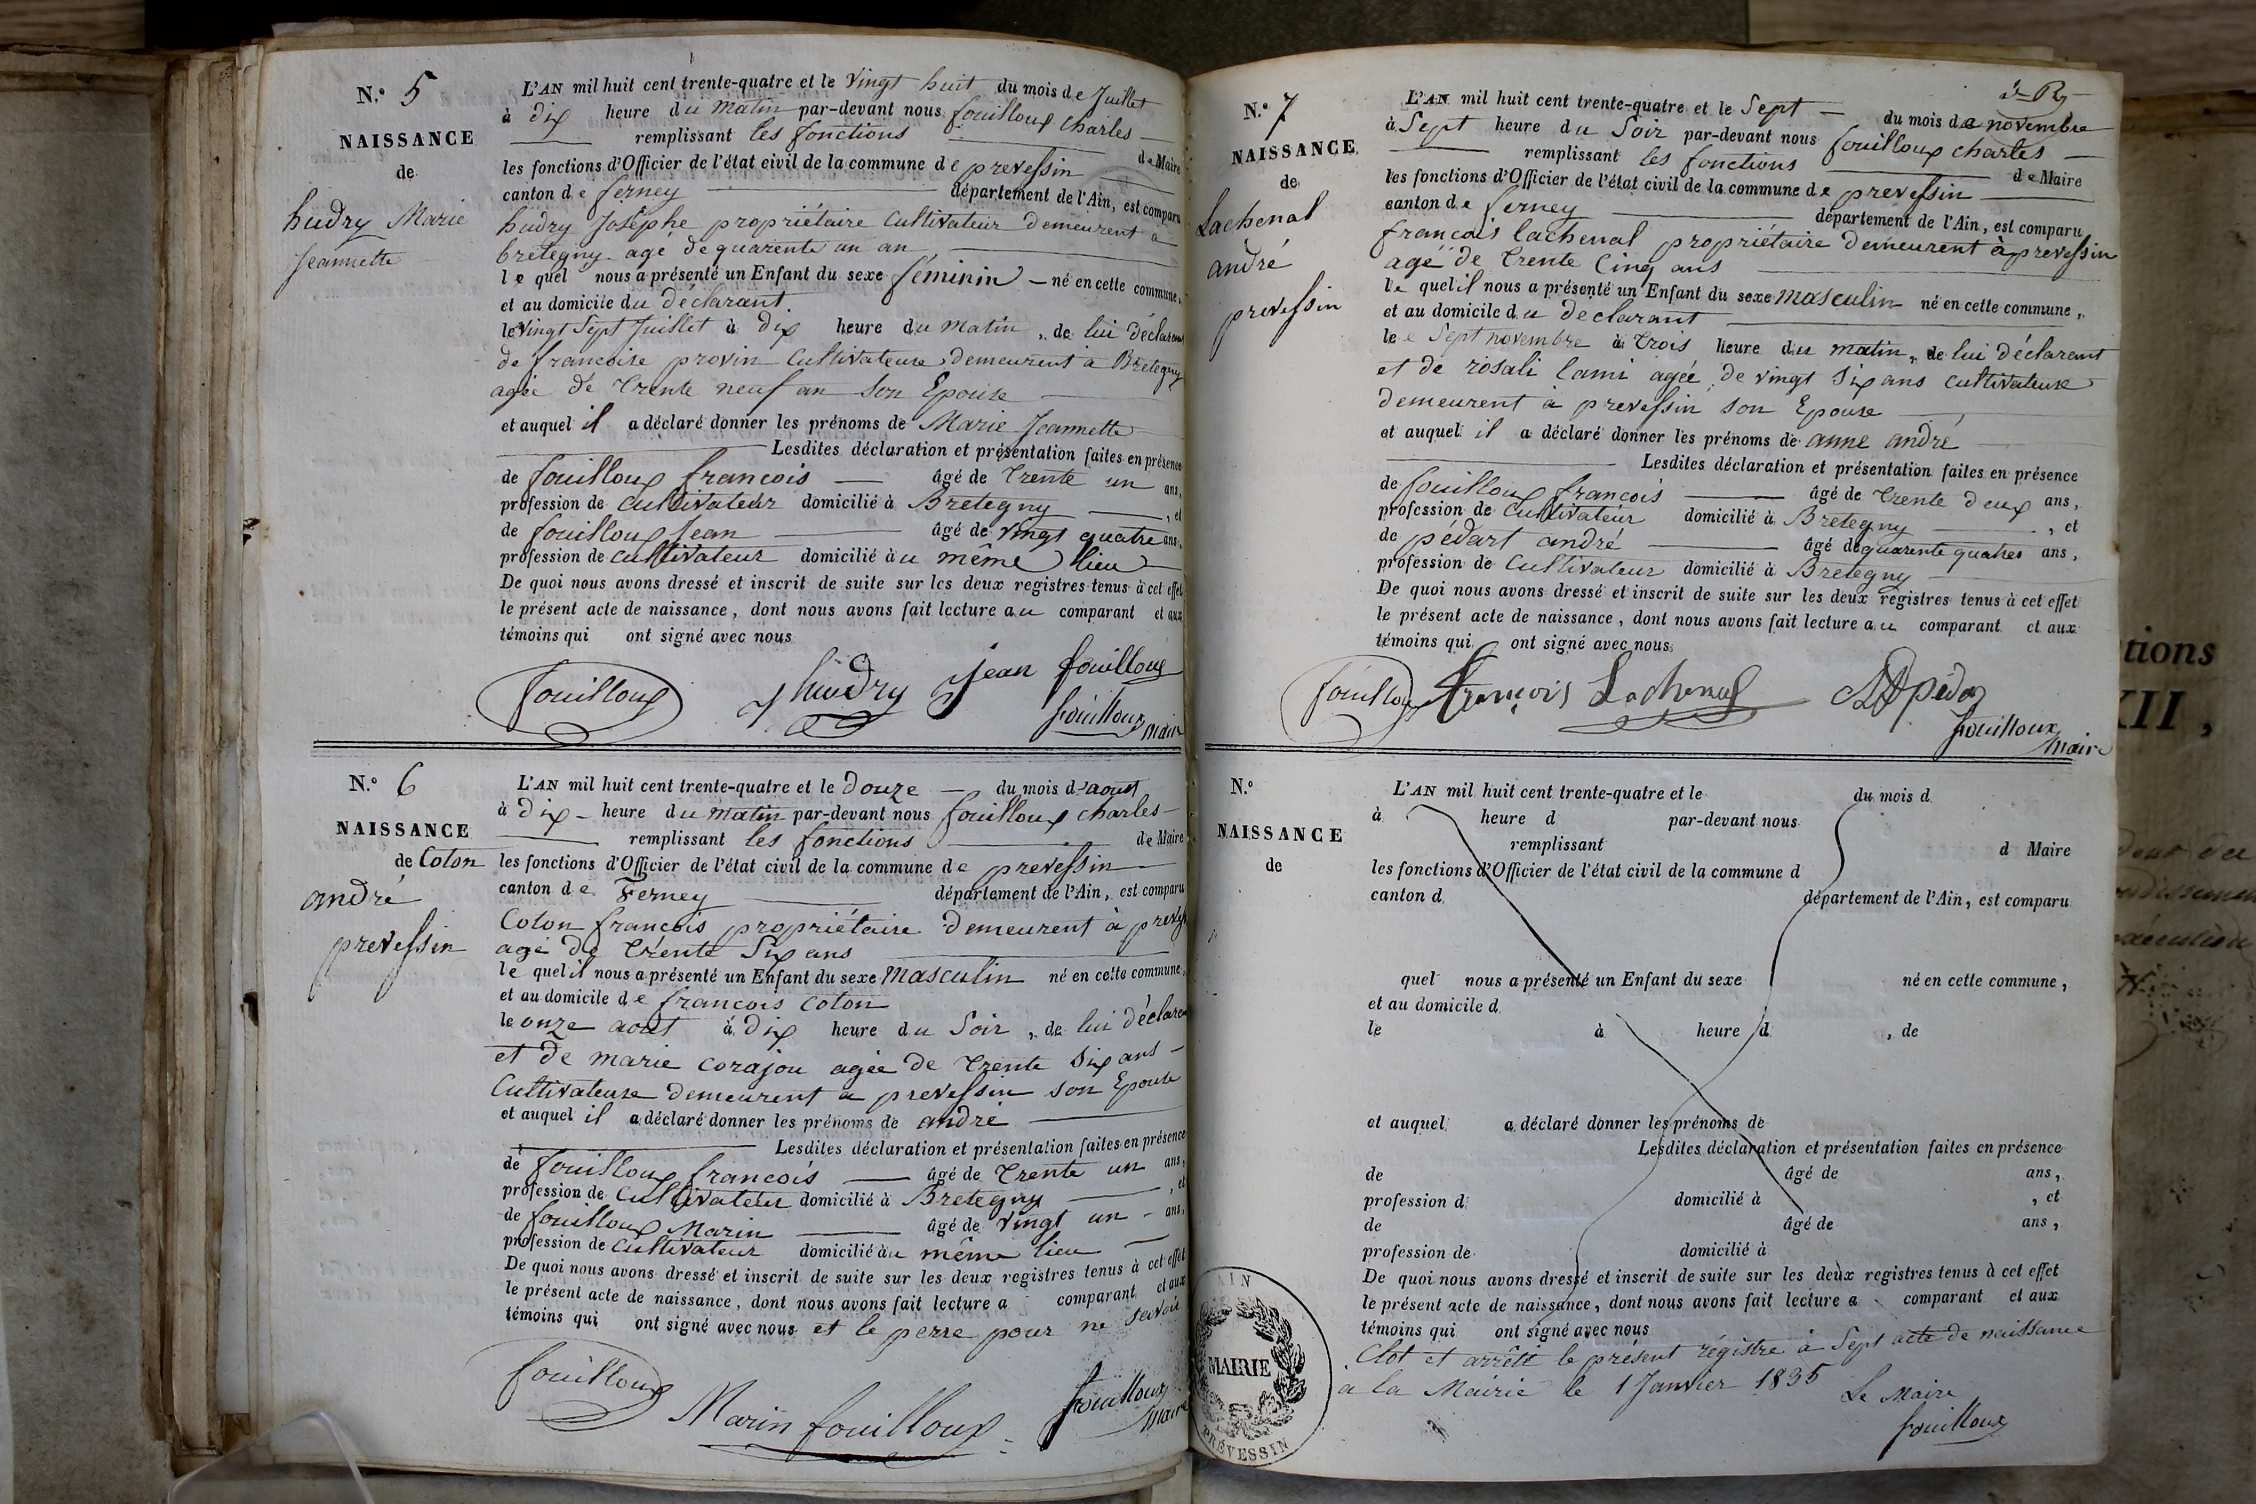 N.° 5
NAISSANCE
de
hudry Marie
Jeannette
L'AN mil huit cent trente-quatre et le vingt huit du mois de Juillet
à dix heure du matin par-devant nous fouilloux charles
remplissant les fonctions de Maire
les fonctions d'Officier de l'état civil de la commune de prevessin
canton de ferney département de l'Ain, est comparu
hudry Josephe propriétaire Cultivateur demeurent a
bretegny agé de quarente un an
le quel nous a présenté un Enfant du sexe féminin né en cette commune,
et au domicile du déclarant
le vingt Sept Juillet à dix heure du matin, de lui déclarent
de francoise provin Cultivateuse demeurent a Bretegny
agée de trente neuf an son Epouse
et auquel il a déclaré donner les prénoms de Marie Jeannette
Lesdites déclaration et présentation faites en présence
de fouilloux francois âgé de trente un ans,
profession de cultivateur domicilié à Bretegny, et
de fouilloux Jean âgé de vingt quatre ans,
profession de cultivateur domicilié au même lieu
De quoi nous avons dressé et inscrit de suite sur les deux registres tenus à cet effet
le présent acte de naissance, dont nous avons fait lecture au comparant et aux
témoins qui ont signé avec nous
fouilloux Jhudry Jean fouilloux
fouilloux maire
N.° 6
NAISSANCE
de Coton
andré
prevessin
L'AN mil huit cent trente-quatre et le douze du mois d'aout
à dix heure du matin par-devant nous fouilloux charles
remplissant les fonctions de Maire
les fonctions d'Officier de l'état civil de la commune de prevessin
canton de Ferney département de l'Ain, est comparu
Coton francois propriétaire demeurent à
agé de trente Six ans
le quel il nous a présenté un Enfant du sexe masculin né en cette commune,
et au domicile de francois coton
le onze aout à dix heure du Soir, de lui déclarent
et de marie corajou agée de trente Six ans
Cultivateuse demeurent a prevessin son Epouse
et auquel il a déclaré donner les prénoms de andré
Lesdites déclaration et présentation faites en présence
de fouilloux francois âgé de trente un ans,
profession de cultivateur domicilié à Bretegny, et
de fouilloux Marin âgé de vingt un ans,
profession de cultivateur domicilié au même lieu
De quoi nous avons dressé et inscrit de suite sur les deux registres tenus à cet effet
le présent acte de naissance, dont nous avons fait lecture a comparant et aux
témoins qui ont signé avec nous et le perre pour ne savoir
fouilloux Marin fouilloux fouilloux maire
N.° 7
NAISSANCE
de
Lachenal
andré
prevessin
L'AN mil huit cent trente-quatre et le Sept du mois de novembre
à Sept heure du Soir par-devant nous fouilloux charles
remplissant les fonctions de Maire
les fonctions d'Officier de l'état civil de la commune de prevessin
canton de ferney département de l'Ain, est comparu
francois lachenal propriétaire demeurent à prevessin
agé de trente Cinq ans
le quel il nous a présenté un Enfant du sexe masculin né en cette commune,
et au domicile du declarant
le Sept novembre à trois heure du matin, de lui déclarent
et de rosali lami agée de vingt Six ans cultivateuse
demeurent à prevessin son Epouse
et auquel il a déclaré donner les prénoms de anne andré
Lesdites déclaration et présentation faites en présence
de fouilloux francois âgé de trente deux ans,
profession de Cultivateur domicilié à Bretegny, et
de pédart andré âgé de quarente quatres ans,
profession de Cultivateur domicilié à Bretegny
De quoi nous avons dressé et inscrit de suite sur les deux registres tenus à cet effet
le présent acte de naissance, dont nous avons fait lecture au comparant et aux
témoins qui ont signé avec nous
fouilloux françois Lachenal
fouilloux maire
N.°
NAISSANCE
de
L'AN mil huit cent trente-quatre et le du mois d
à heure d par-devant nous
remplissant d Maire
les fonctions d'Officier de l'état civil de la commune d
canton d département de l'Ain, est comparu
quel nous a présenté un Enfant du sexe né en cette commune,
et au domicile d
le à heure d, de
et auquel a déclaré donner les prénoms de
Lesdites déclaration et présentation faites en présence
de âgé de ans,
profession d domicilié à, et
de âgé de ans,
profession de domicilié à
De quoi nous avons dressé et inscrit de suite sur les deux registres tenus à cet effet
le présent acte de naissance, dont nous avons fait lecture a comparant et aux
témoins qui ont signé avec nous
Clot et arrêté le présent régistre à Sept acte de naissance
a la Mairie le 1 Janvier 1835 Le Maire
fouilloux
AIN
MAIRIE
PRÉVESSIN
tions
XII,